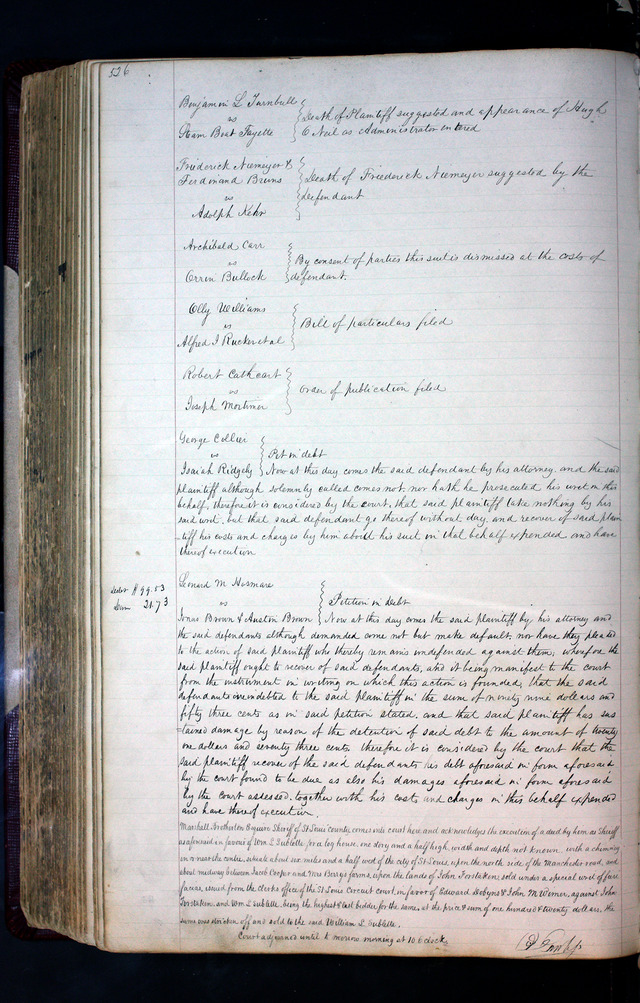 526
Benjamin L Turnbull
vs
Steam Boat Fayette
Death of Plaintiff suggested and appearance of Hugh
O Neil as Administrator entered
Friederick Niemeyer &
Ferdinand Bruns
vs
Adolph Kehr
Death of Friederick Niemeyer suggested by the
defendant
Archibald Carr
vs
Orrin Bullock
By consent of parties this suit is dismissed at the costs of
defendant.
Olly Williams
vs
Alfred J Rucker et al
Bill of particulars filed
Robert Cathcart
vs
Joseph Mortimer
Order of publication filed
George Collier
vs
Isaiah Ridgely
Pet in debt
Now at this day comes the said defendant by his attorney, and the said
plaintiff although solemnly called comes not, nor hath he prosecuted his writ in this
behalf, therefore it is considered by the court, that said plaintiff take nothing by his
said writ, but that said defendant go thereof without day, and recover of said plain
-tiff his costs and charges by him about his suit in that behalf expended and have
thereof execution
Debt $99.53
Dam 21.73
Leonard M
vs
Jonas Brown & Austin Brown
Petition in debt
Now at this day comes the said plaintiff by, his attorney and
the said defendants although demanded come not but make default, nor have they pleaded
to the action of said plaintiff who thereby remains undefended against them, wherefore the
said plaintiff ought to recover of said defendants, and it being manifest to the court
from the instrument in writing on which this action is founded, that the said
defendants are indebted to the said plaintiff in the sum of ninety nine dollars and
fifty three cents as in said petition stated, and that said plaintiff has sus
-tained damage by reason of the detention of said debt to the amount of twenty
one dollars and seventy three cents therefore it is considered by the court that the
said plaintiff recover of the said defendants his debt aforesaid in form aforesaid
by the court found to be due as also his damages aforesaid in form aforesaid
by the court assessed, together with his costs and charges in this behalf expended
and have thereof execution.
Marshall Brotherton Esquire Sheriff of St Louis County, comes into court here, and acknowledges the execution of a deed by him as Sheriff
as aforesaid in favour of Wm L Sublette, for a log house, one story and a half high, width and depth not known, with a chimney
in or near the centre, situate about six miles and a half west of the city of St Louis, upon the north side of the Manchester road, and
about midway between Jacob Cooper and Mrs Berry's farms, upon the lands of John sold under a special writ of fieri
facias, issued from the clerks office of the St Louis Circuit court, in favor of Edward Dobyns & John M Wimer, against John
and Wm L Sublette, being the highest & last bidder for the same, at the price & sum of one hundred & twenty dollars, the
same was stricken off and sold to the said William L Sublette.
Court adjourned until to morrow morning at 10 O clock